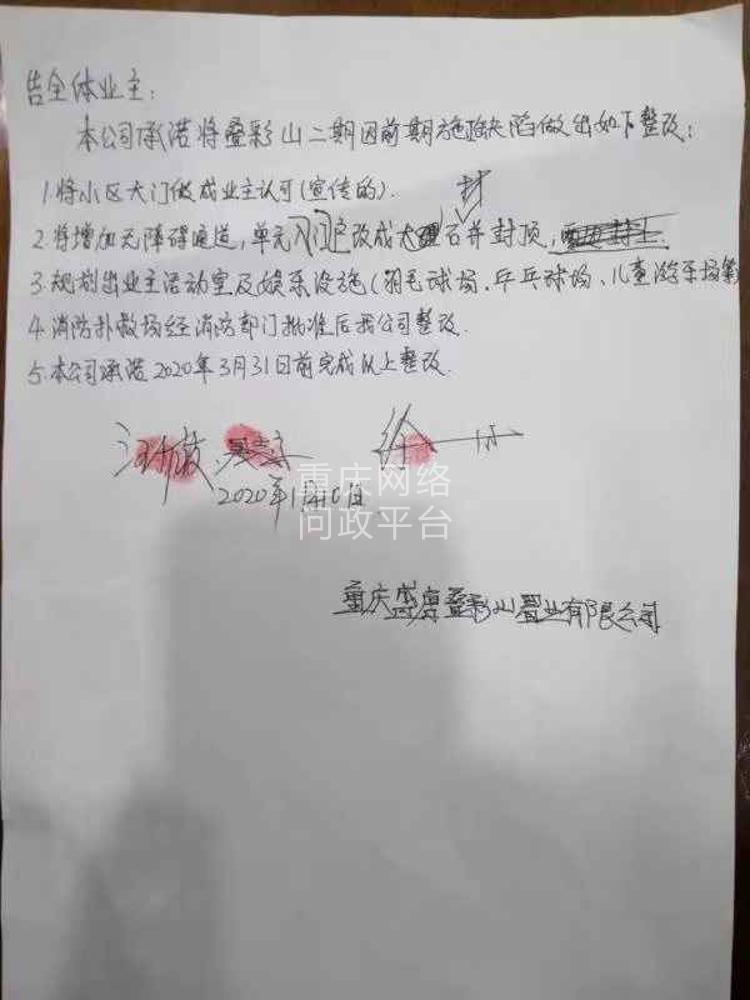 告全体业主:
本公司承诺将叠彩山二期因前期施缺陷做出如下整改:
1.将小区大门做成业主认可(宣传的).
封
2.将增加无障碍通道,单元入门户改成大理石并封顶,
3.规划出业主活动室及娱乐设施(羽毛球场、乒乓球场、儿童游乐场等
4.消防扑救场经消防部门批准后我公司整改.
5.本公司承诺2020年3月31日前完成以上整改.
徐
2020年1月10日.
重庆网络
问政平台
重庆盛唐叠彩山置业有限公司